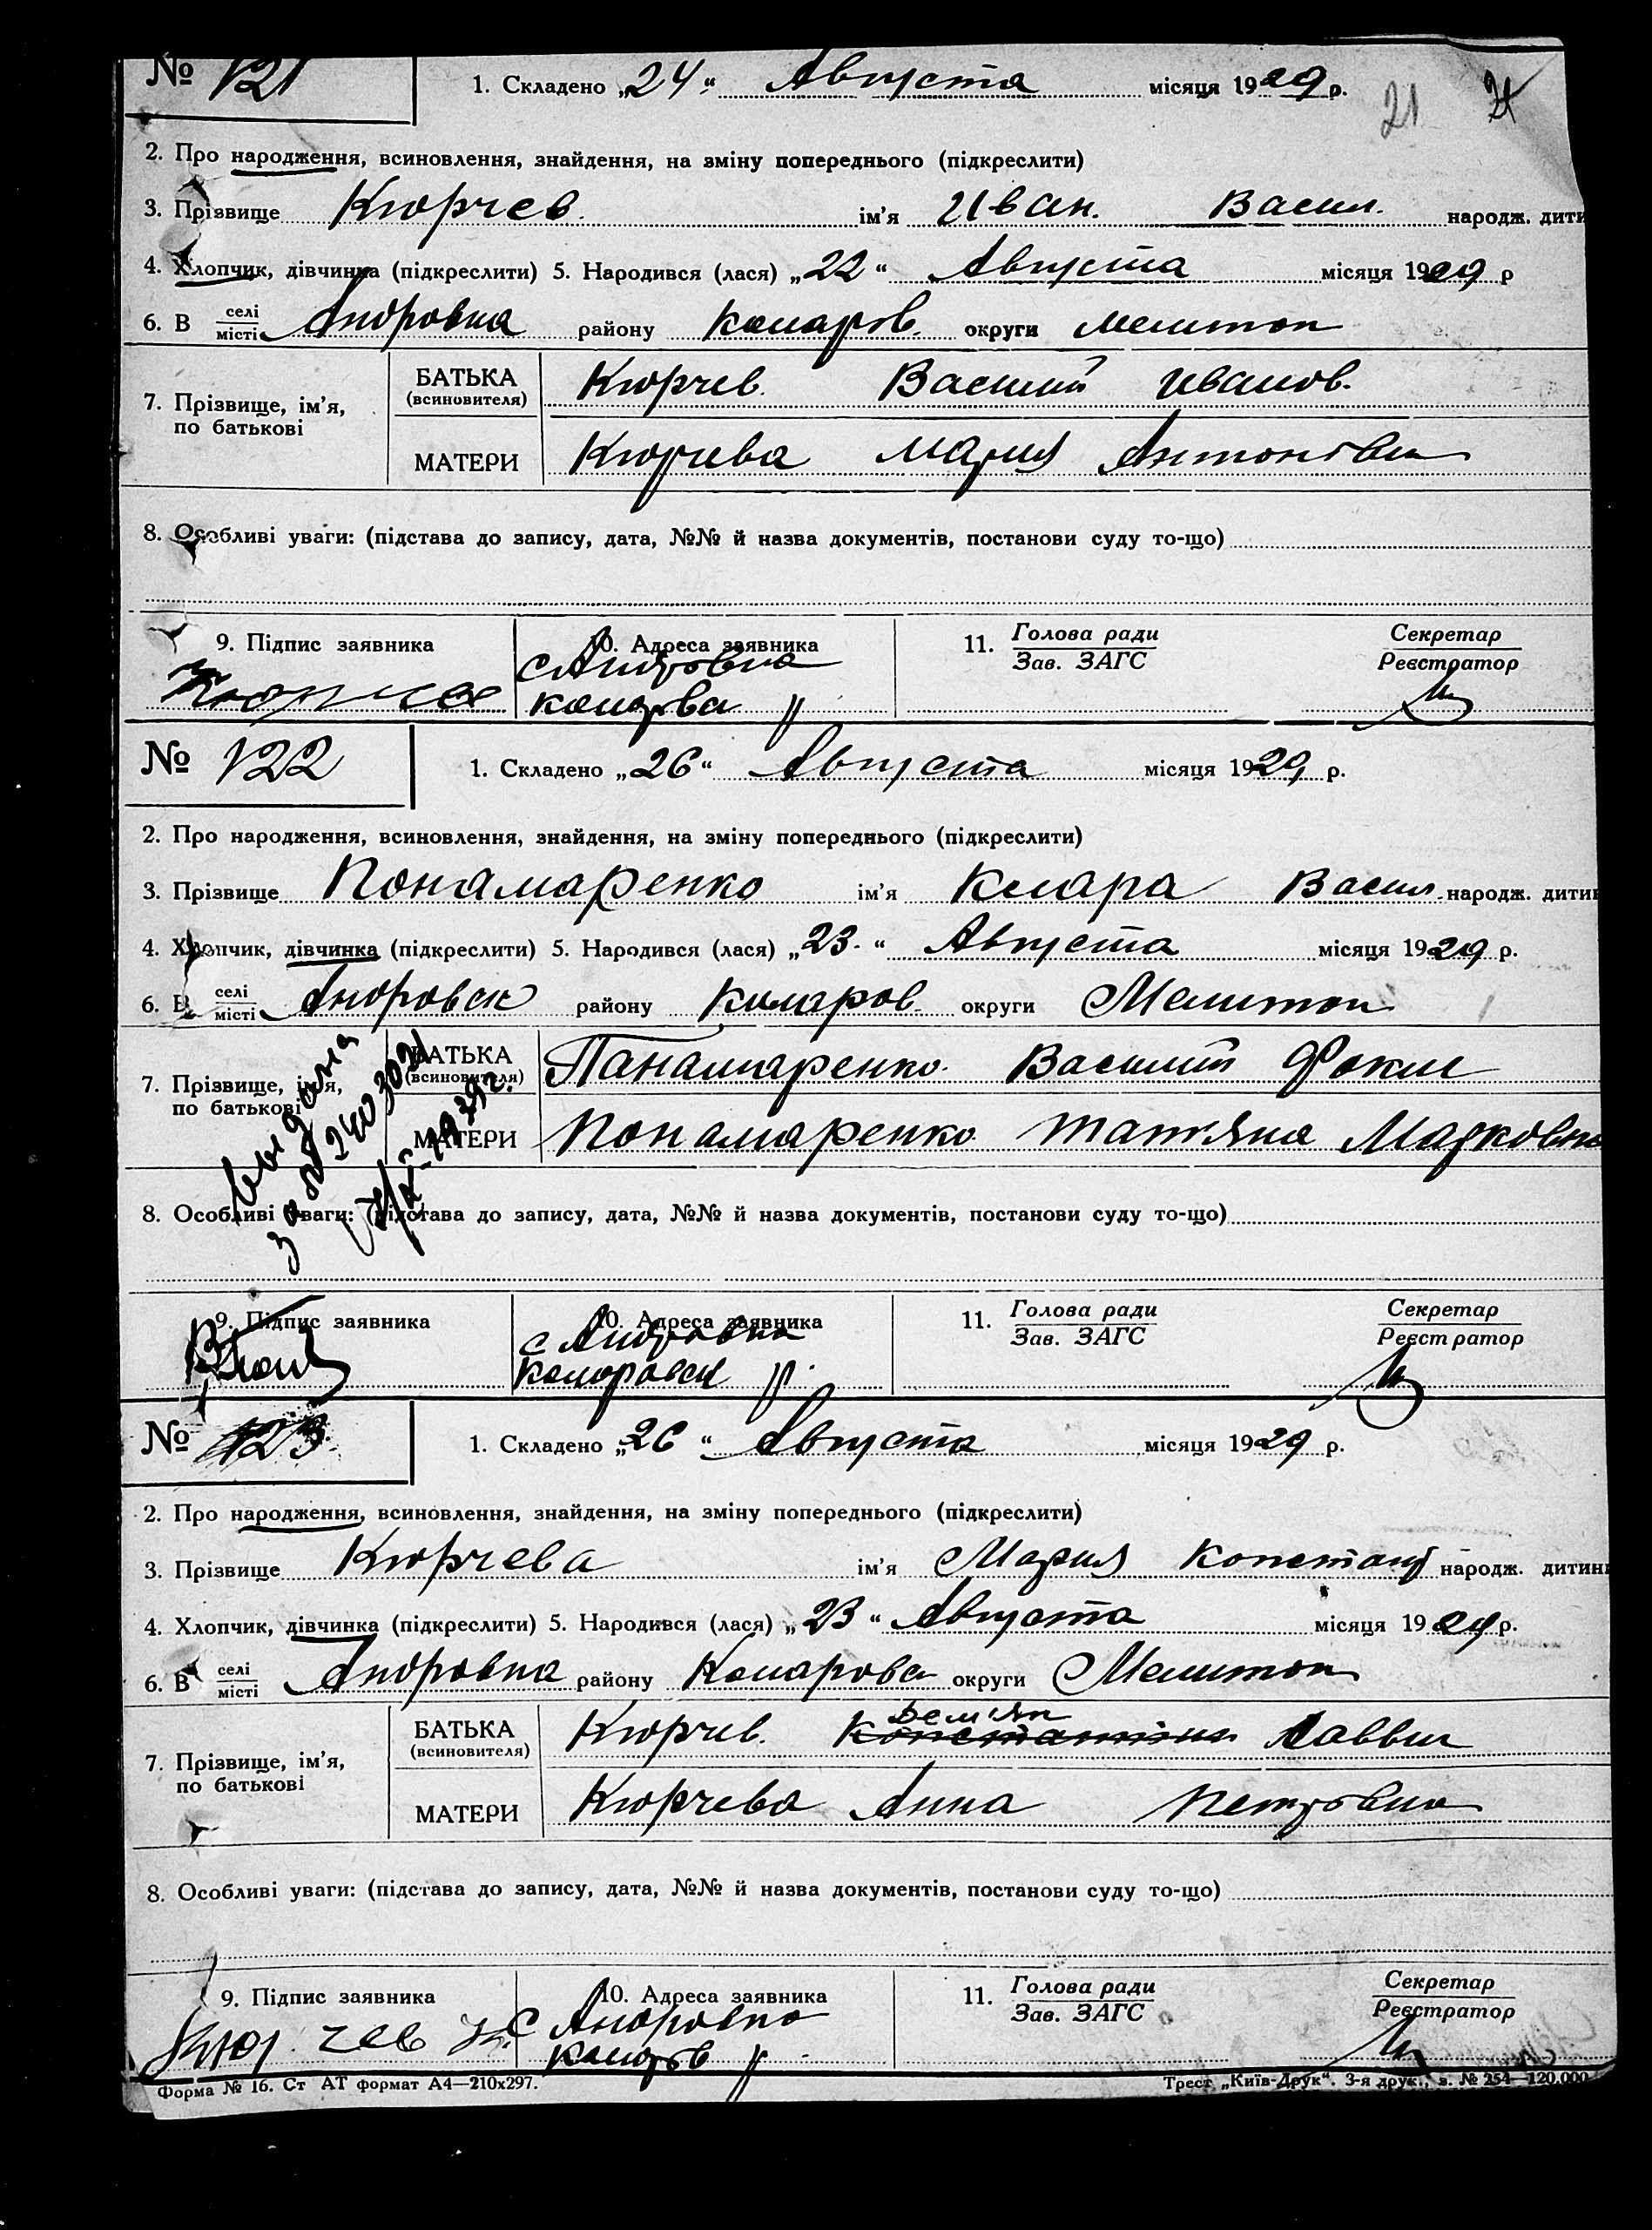 № 121 1. Складено „24“ Августа місяця 1929 р. 21
2. Про народження, всиновлення, знайдення, на зміну попереднього (підкреслити)
3. Прізвище Кюрчев. ім'я Иван. Васил. народж. дити
4. Хлопчик, дівчинка (підкреслити) 5. Народився (лася) „22“ Августа місяця 1929 р
6. В селі місті Андровка району Коларов. округи Мелитоп
7. Прізвище, ім'я, по батькові
БАТЬКА (всиновителя) Кюрчев. Василий Иванов.
МАТЕРИ Кюрчева Мария Антоновн
8. Особливі уваги: (підстава до запису, дата, №№ й назва документів, постанови суду то-що)
9. Підпис заявника 10. Адреса заявника 11. Голова ради Зав. ЗАГС Секретар Реєстратор
с Андровка
Кюрчев Коларова р
№ 122 1. Складено „26“ Августа місяця 1929 р.
2. Про народження, всиновлення, знайдення, на зміну попереднього (підкреслити)
3. Прізвище Понамаренко ім'я Клара Васил. народж. дитин
4. Хлопчик, дівчинка (підкреслити) 5. Народився (лася) „23.“ Августа місяця 1929 р.
6. В селі місті Андровск району Коларов. округи Мелитоп
7. Прізвище, ім'я, по батькові
БАТЬКА (всиновителя) Панамаренко. Василий Фоки
МАТЕРИ Понамаренко Татьяна Марковна
выдана
8. Особливі уваги: (підстава до запису, дата, №№ й назва документів, постанови суду то-що)
9. Підпис заявника 10. Адреса заявника 11. Голова ради Зав. ЗАГС Секретар Реєстратор
с Андровка
Коларовск р.
№ 123 1. Складено „26“ Августа місяця 1929 р.
2. Про народження, всиновлення, знайдення, на зміну попереднього (підкреслити)
3. Прізвище Кюрчева ім'я Мария Констант народж. дитини
4. Хлопчик, дівчинка (підкреслити) 5. Народився (лася) „23“ Августа місяця 1929 р.
6. В селі місті Андровка району Коларова округи Мелитоп
7. Прізвище, ім'я, по батькові
Демьян
БАТЬКА (всиновителя) Кюрчев. Константин Саввич
МАТЕРИ Кюрчева Анна Петровна
8. Особливі уваги: (підстава до запису, дата, №№ й назва документів, постанови суду то-що)
9. Підпис заявника 10. Адреса заявника 11. Голова ради Зав. ЗАГС Секретар Реєстратор
Кюрчев с Андровка
Коларов р
Форма № 16. Ст АТ формат А4—210х297. Трест „Київ-Друк“. 3-я друк., з. № 254—120.000